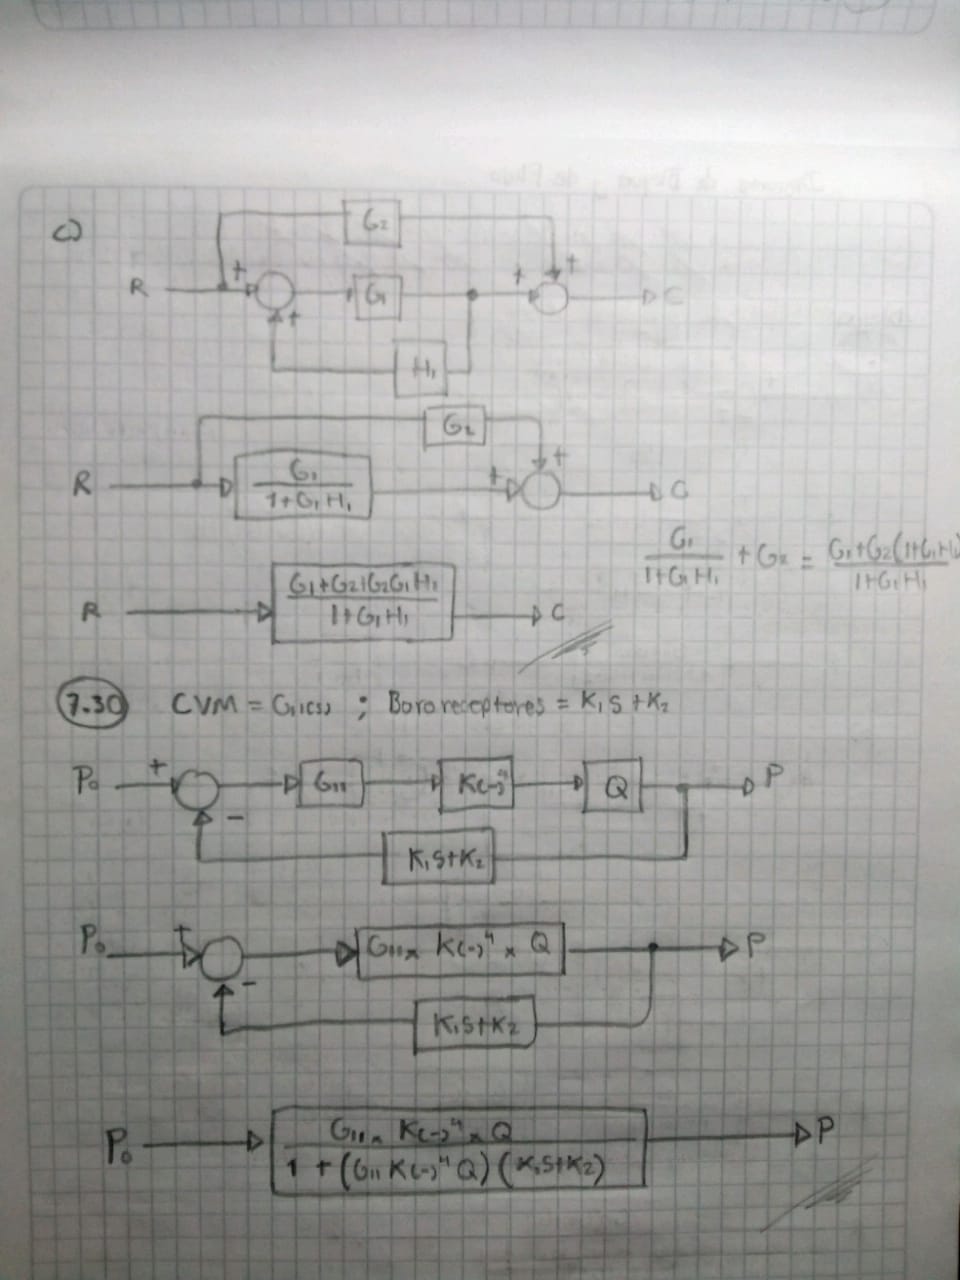 c)
G2
R + + G1 + + C
H1
G2
R G1/1+G1H1 + + C
G1/1+G1H1 + G2 = G1+G2(1+G1H1)/1+G1H1
R G1+G2+G2G1H1/1+G1H1 C
7.30 CVM = G11(s) ; Bororeceptores = K1S+K2
P0 + - G11 K(-)⁴ Q P
K1S+K2
P0 + - G11 x K(-)⁴ x Q P
K1S+K2
P0 G11 x K(-)⁴ x Q/1 + (G11 K(-)⁴ Q)(K1S+K2) P